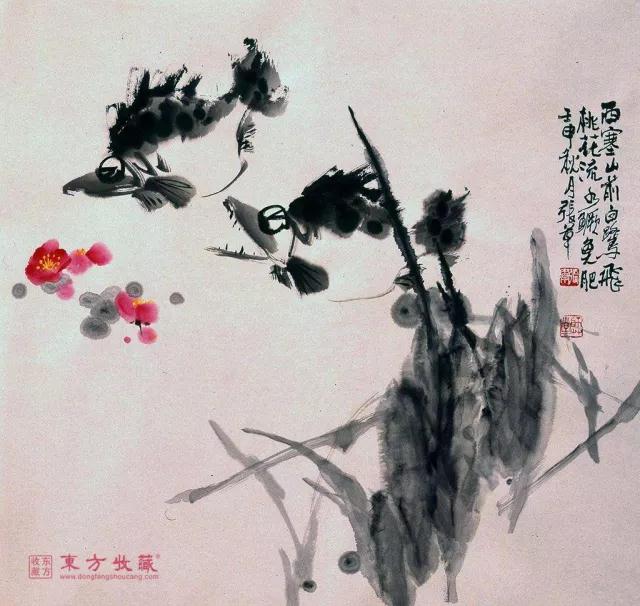 西塞山前白鷺飛
桃花流水鱖魚肥
壬申秋月張草
东方
收藏
東方收藏®
www.dongfangshoucang.com